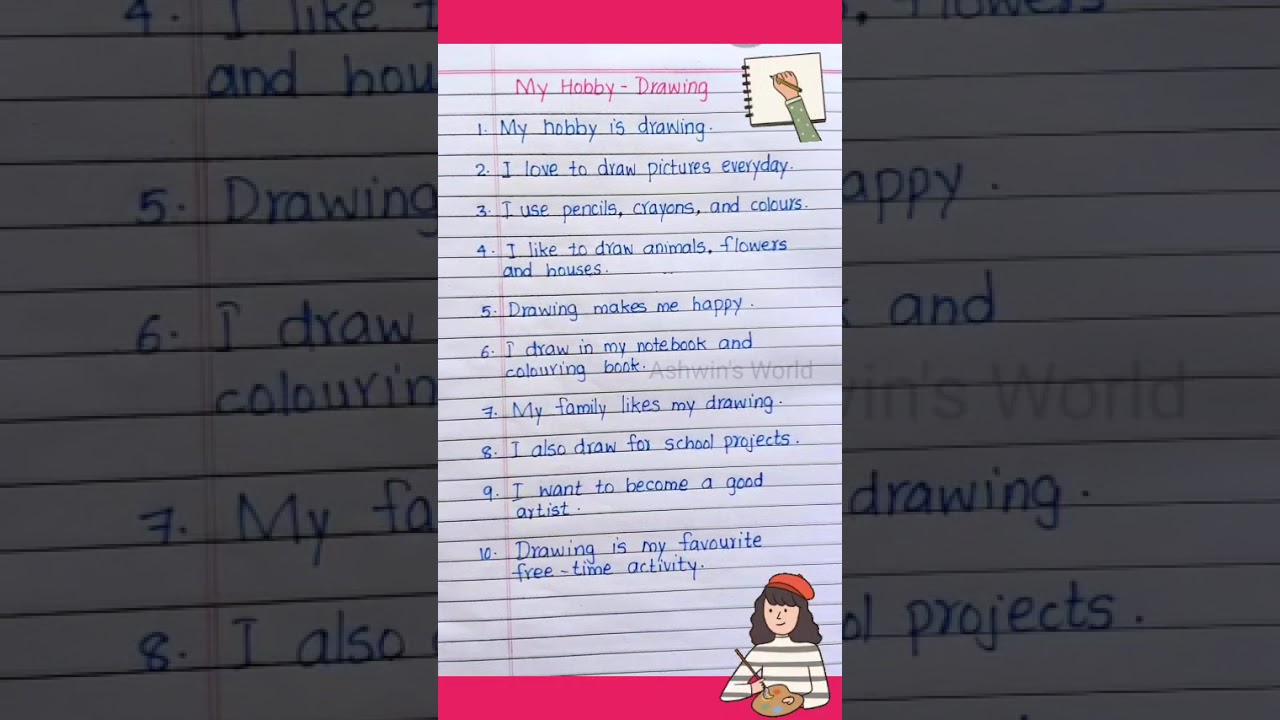 My Hobby - Drawing
1. My hobby is drawing.
2. I love to draw pictures everyday.
3. I use pencils, crayons, and colours.
4. I like to draw animals, flowers
and houses.
5. Drawing makes me happy.
6. I draw in my notebook and
colouring book.
Ashwin's World
7. My family likes my drawing.
8. I also draw for school projects.
9. I want to become a good
artist.
10. Drawing is my favourite
free-time activity.